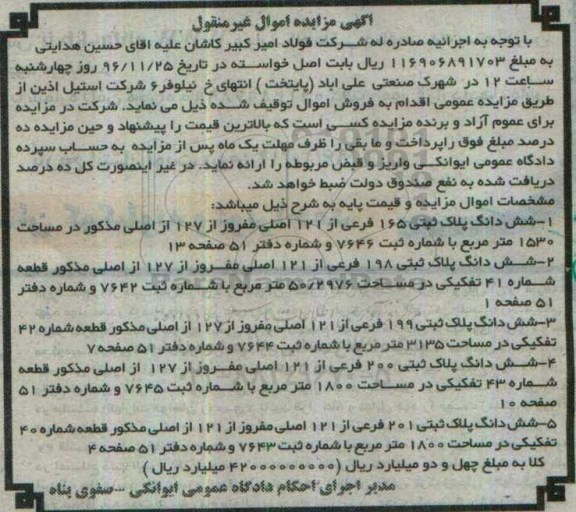 آگهی مزایده اموال غیرمنقول
با توجه به اجرائیه صادره له شرکت فولاد امیر کبیر کاشان علیه اقای حسین هدایتی
به مبلغ ۱۱۶۹۰۶۸۹۱۷۰۳ ریال بابت اصل خواسته در تاریخ ۹۶/۱۱/۲۵ روز چهارشنبه
ساعت ۱۲ در شهرک صنعتی علی اباد (پایتخت) انتهای خ نیلوفر۶ شرکت استیل اذین از
طریق مزایده عمومی اقدام به فروش اموال توقیف شده ذیل می نماید. شرکت در مزایده
برای عموم آزاد و برنده مزایده کسی است که بالاترین قیمت را پیشنهاد و حین مزایده ده
درصد مبلغ فوق راپرداخت و ما بقی را ظرف مهلت یک ماه پس از مزایده به حساب سپرده
دادگاه عمومی ایوانکی واریز و قبض مربوطه را ارائه نماید. در غیر اینصورت کل ده درصد
دریافت شده به نفع صندوق دولت ضبط خواهد شد.
مشخصات اموال مزایده و قیمت پایه به شرح ذیل میباشد:
۱-شش دانگ پلاک ثبتی ۱۶۵ فرعی از ۱۲۱ اصلی مفروز از ۱۲۷ از اصلی مذکور در مساحت
۱۵۳۰ متر مربع با شماره ثبت ۷۶۴۶ و شماره دفتر ۵۱ صفحه ۱۳
۲-شش دانگ پلاک ثبتی ۱۹۸ فرعی از ۱۲۱ اصلی مفروز از ۱۲۷ از اصلی مذکور قطعه
شماره ۴۱ تفکیکی در مساحت ۵۰/۲۹۷۶ متر مربع با شماره ثبت ۷۶۴۲ و شماره دفتر
۵۱ صفحه ۱
۳-شش دانگ پلاک ثبتی ۱۹۹ فرعی از ۱۲۱ اصلی مفروز از ۱۲۷ از اصلی مذکور قطعه شماره ۴۲
تفکیکی در مساحت ۳۱۳۵ متر مربع با شماره ثبت ۷۶۴۴ و شماره دفتر ۵۱ صفحه ۷
۴-شش دانگ پلاک ثبتی ۲۰۰ فرعی از ۱۲۱ اصلی مفروز از ۱۲۷ از اصلی مذکور قطعه
شماره ۴۳ تفکیکی در مساحت ۱۸۰۰ متر مربع با شماره ثبت ۷۶۴۵ و شماره دفتر ۵۱
صفحه ۱۰
۵-شش دانگ پلاک ثبتی ۲۰۱ فرعی از ۱۲۱ اصلی مفروز از ۱۲۱ از اصلی مذکور قطعه شماره ۴۰
تفکیکی در مساحت ۱۸۰۰ متر مربع با شماره ثبت ۷۶۴۳ و شماره دفتر ۵۱ صفحه ۴
کلا به مبلغ چهل و دو میلیارد ریال (۴۲۰۰۰۰۰۰۰۰۰ میلیارد ریال)
مدیر اجرای احکام دادگاه عمومی ایوانکی --صفوی پناه